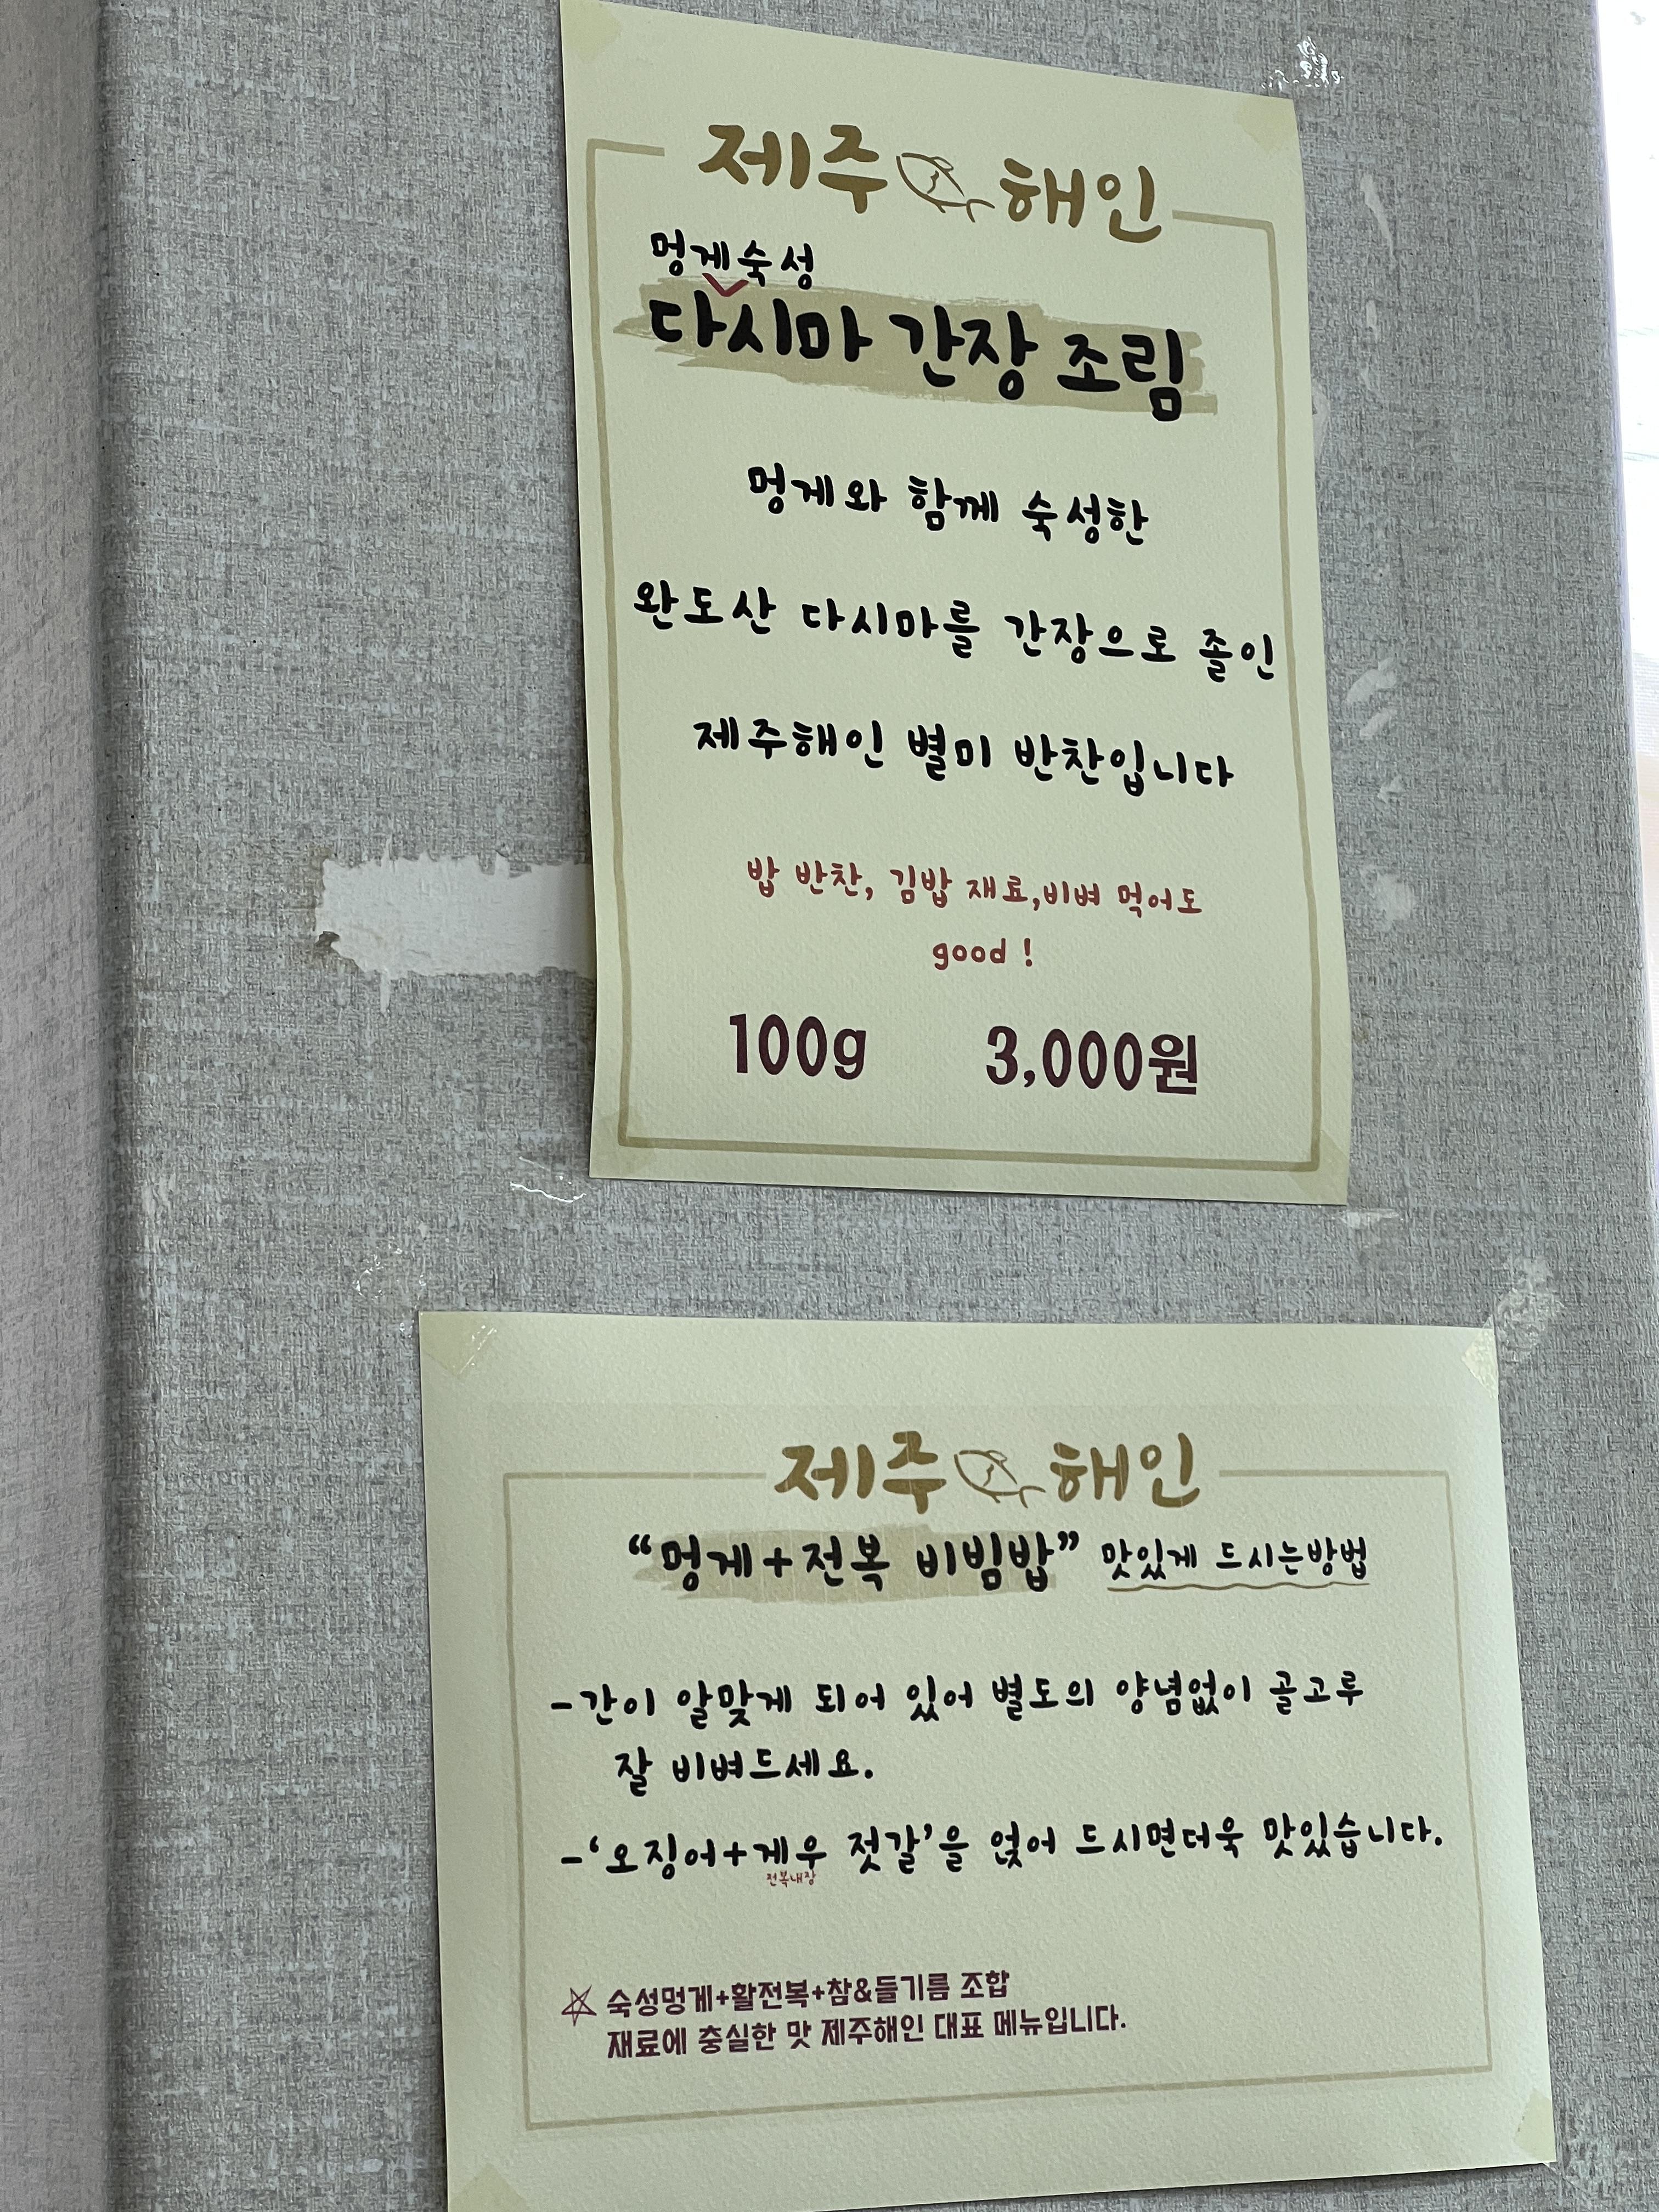 제주 해인
멍게숙성
다시마 간장 조림
멍게와 함께 숙성한
완도산 다시마를 간장으로 졸인
제주해인 별미 반찬입니다
밥 반찬, 김밥 재료,비벼 먹어도
good !
100g 3,000원
제주 해인
“멍게+전복 비빔밥” 맛있게 드시는방법
-간이 알맞게 되어 있어 별도의 양념없이 골고루
잘 비벼드세요.
-‘오징어+게우 젓갈’을 얹어 드시면더욱 맛있습니다.
전복내장
☆ 숙성멍게+활전복+참&들기름 조합
재료에 충실한 맛 제주해인 대표 메뉴입니다.